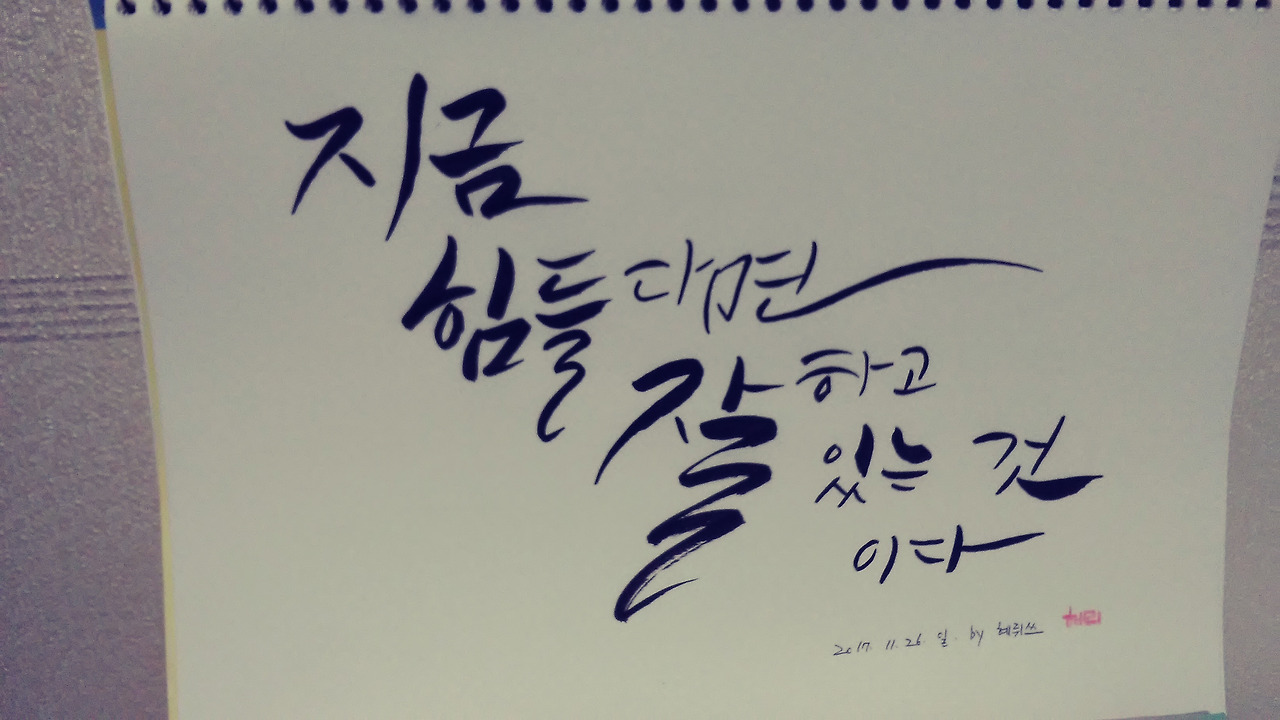 지금
힘들다면
잘하고
있는 것
이다
2017. 11. 26 일. by 혜뤼쓰